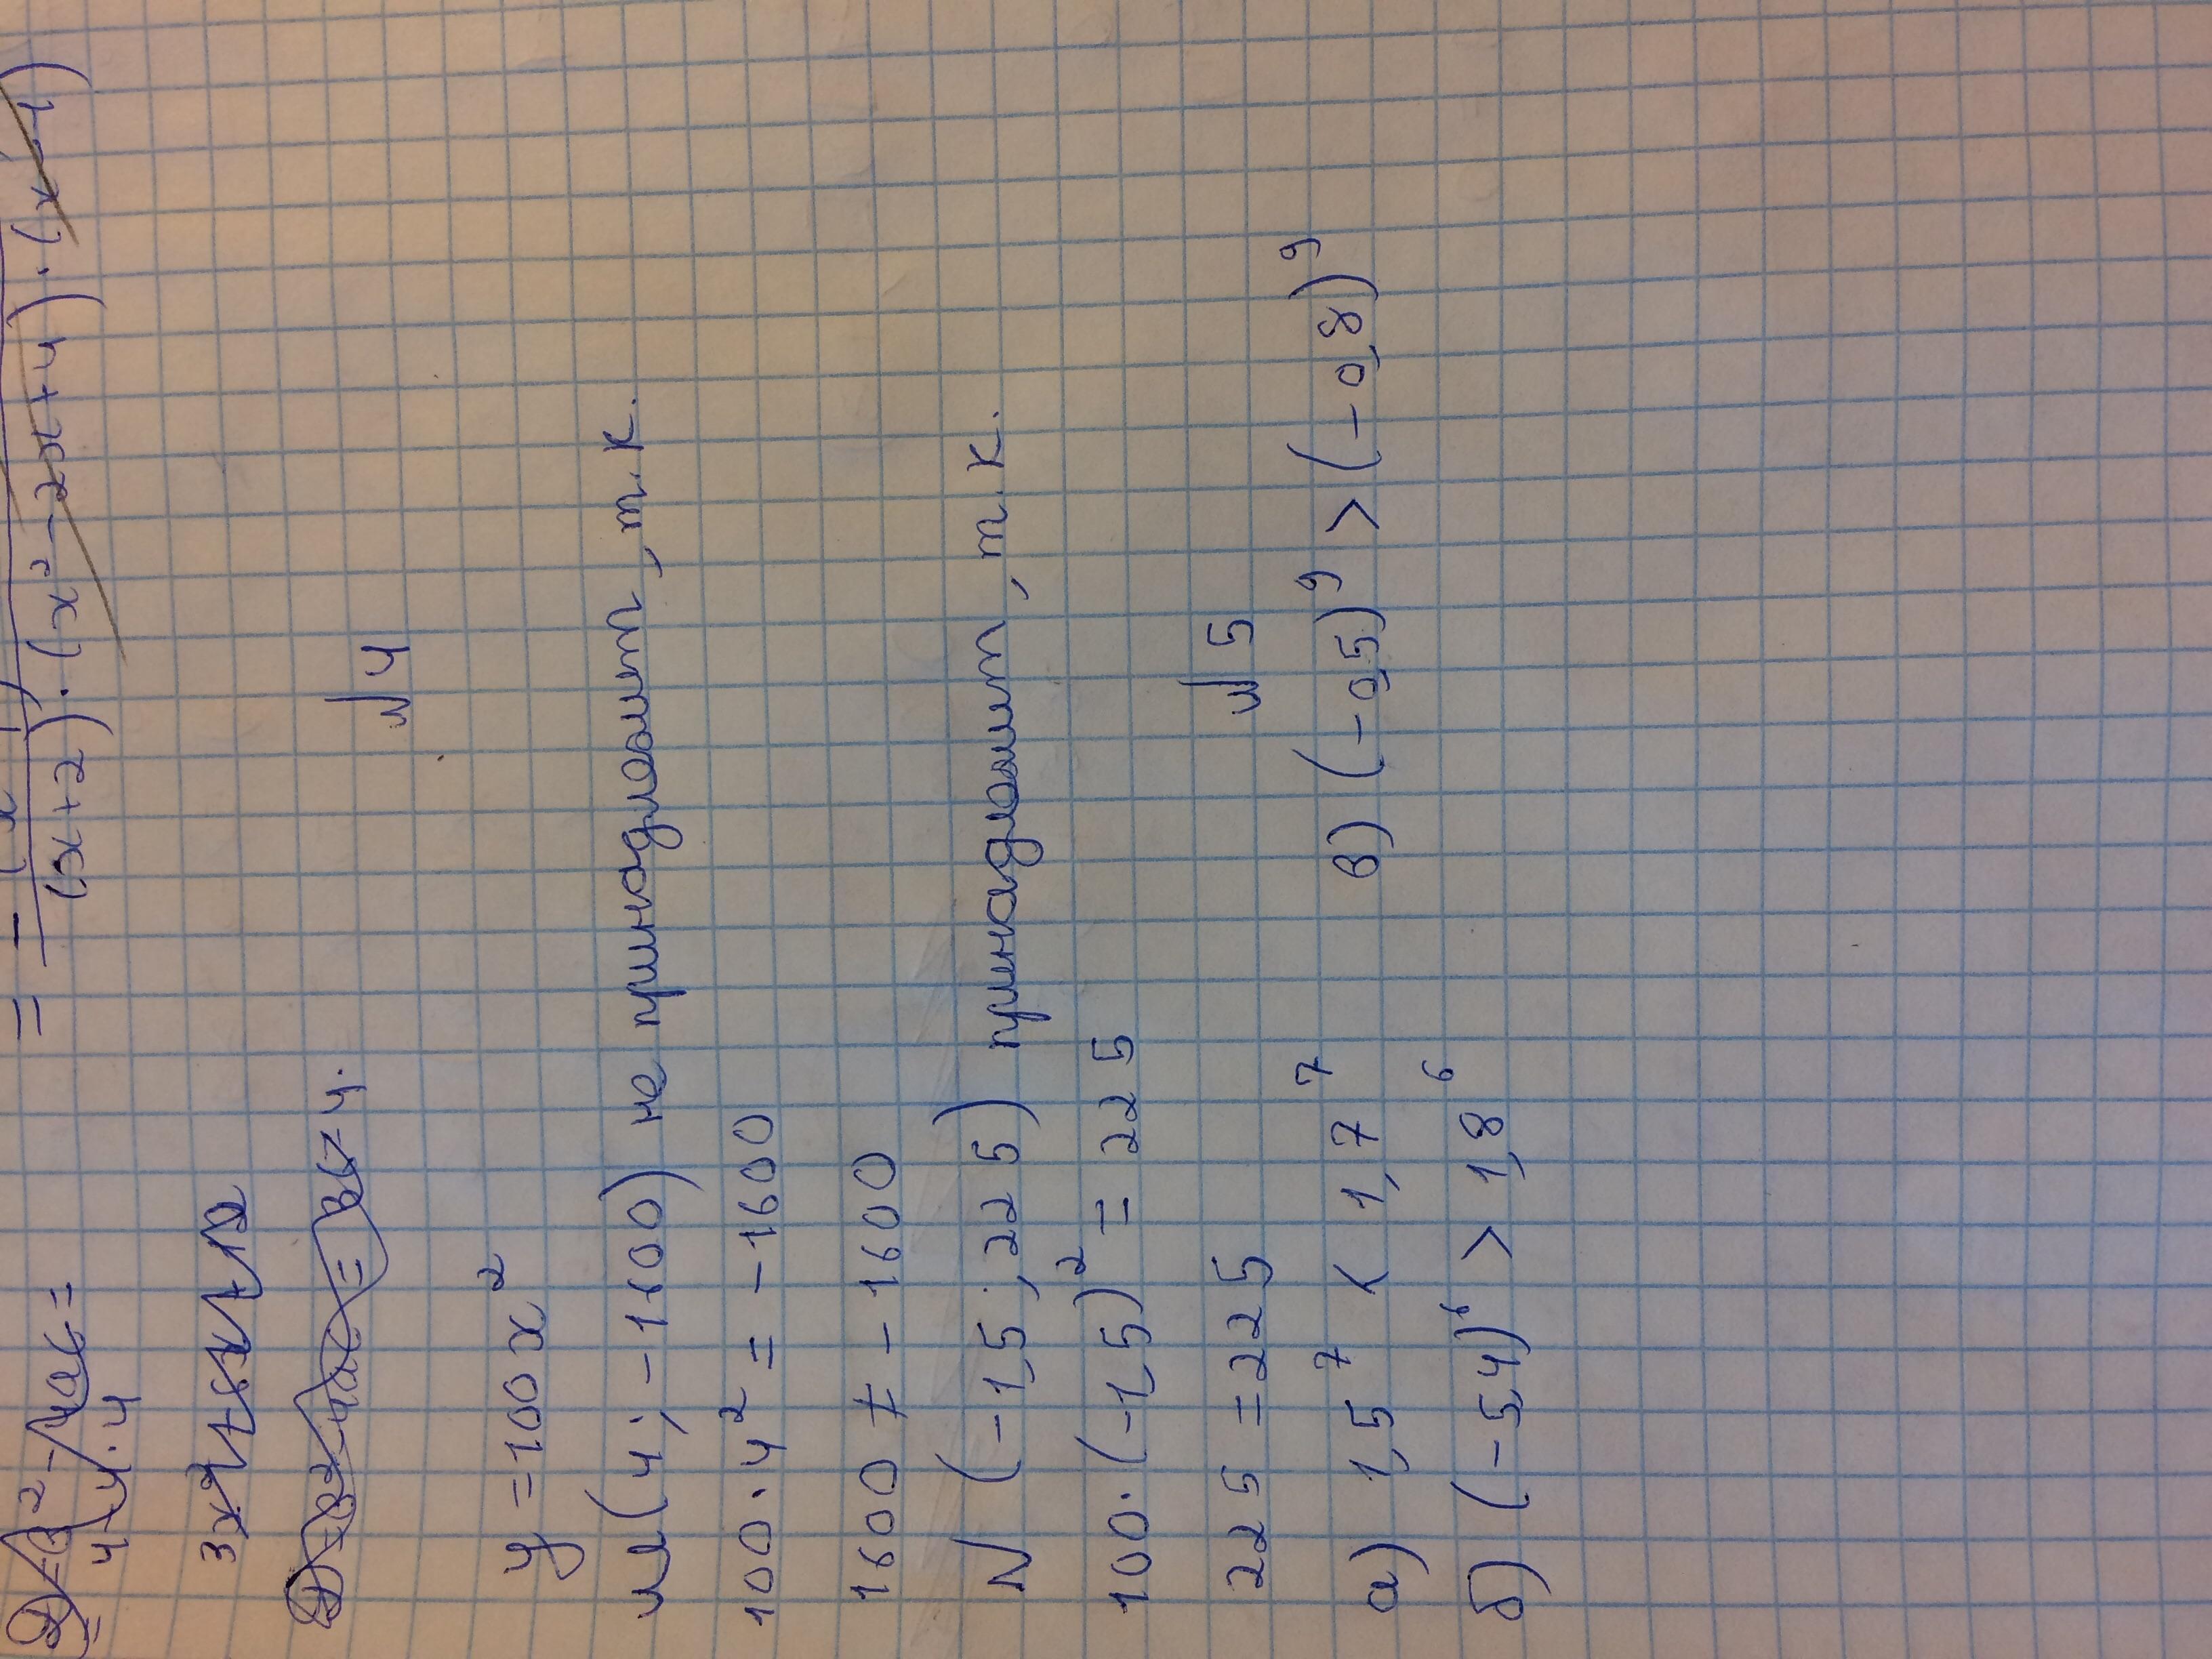 = -
(x+2)·(x²-2x+4)·(x-4)
4·4·4
№4
y=100x²
м(4;-1600) не принадлежит, т.к.
100·4²=-1600
1600≠-1600
N(-1,5;225) принадлежит, т.к.
100·(-1,5)²=225
225=225
№5
а) 1,5⁷<1,7⁷ в) (-0,5)⁹>(-0,8)⁹
б) (-5,4)⁶>1,8⁶